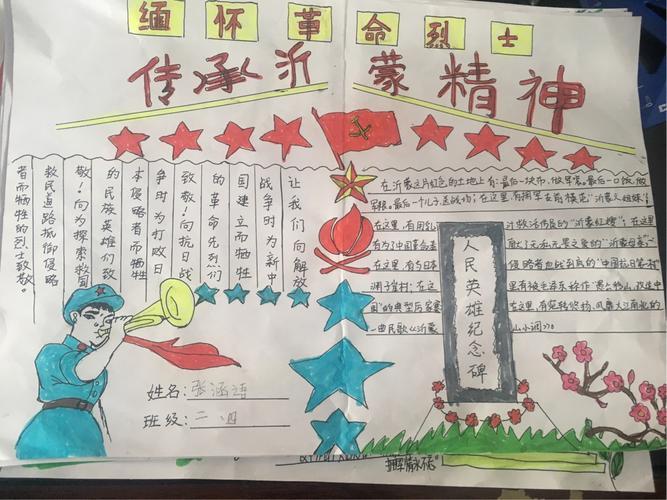 缅怀革命烈士
传承沂蒙精神
让我们向解放
战争时为新中
国建立而牺牲
的革命先烈们
致敬!向抗日战
争时为打败日
本侵略者而牺牲
的民族英雄们致
敬!向为探索救国
救民道路抵御侵略
者而牺牲的烈士致敬。
在沂蒙这片红色的土地上有:最后一块布,做军装。最后一口饭,做
军粮。最后一个儿子,送战场;在这里,有拥军支前模范"沂蒙六姐妹!
在这里,有用乳 救活伤员的"沂蒙红嫂";在这里
有为了中国革命 "沂蒙母亲";
在这里,有与日本 侵略者血战到底的"中国抗日第一村
渊子崖村;在这 里有被毛泽东称作"愚公移山,改造中
国"的典型厉家寨 在这里,有宛转悠扬,风靡大江南北的
一曲民歌《沂蒙 山小调》。
人民英雄纪念碑
姓名:张涵语
班级:二.四